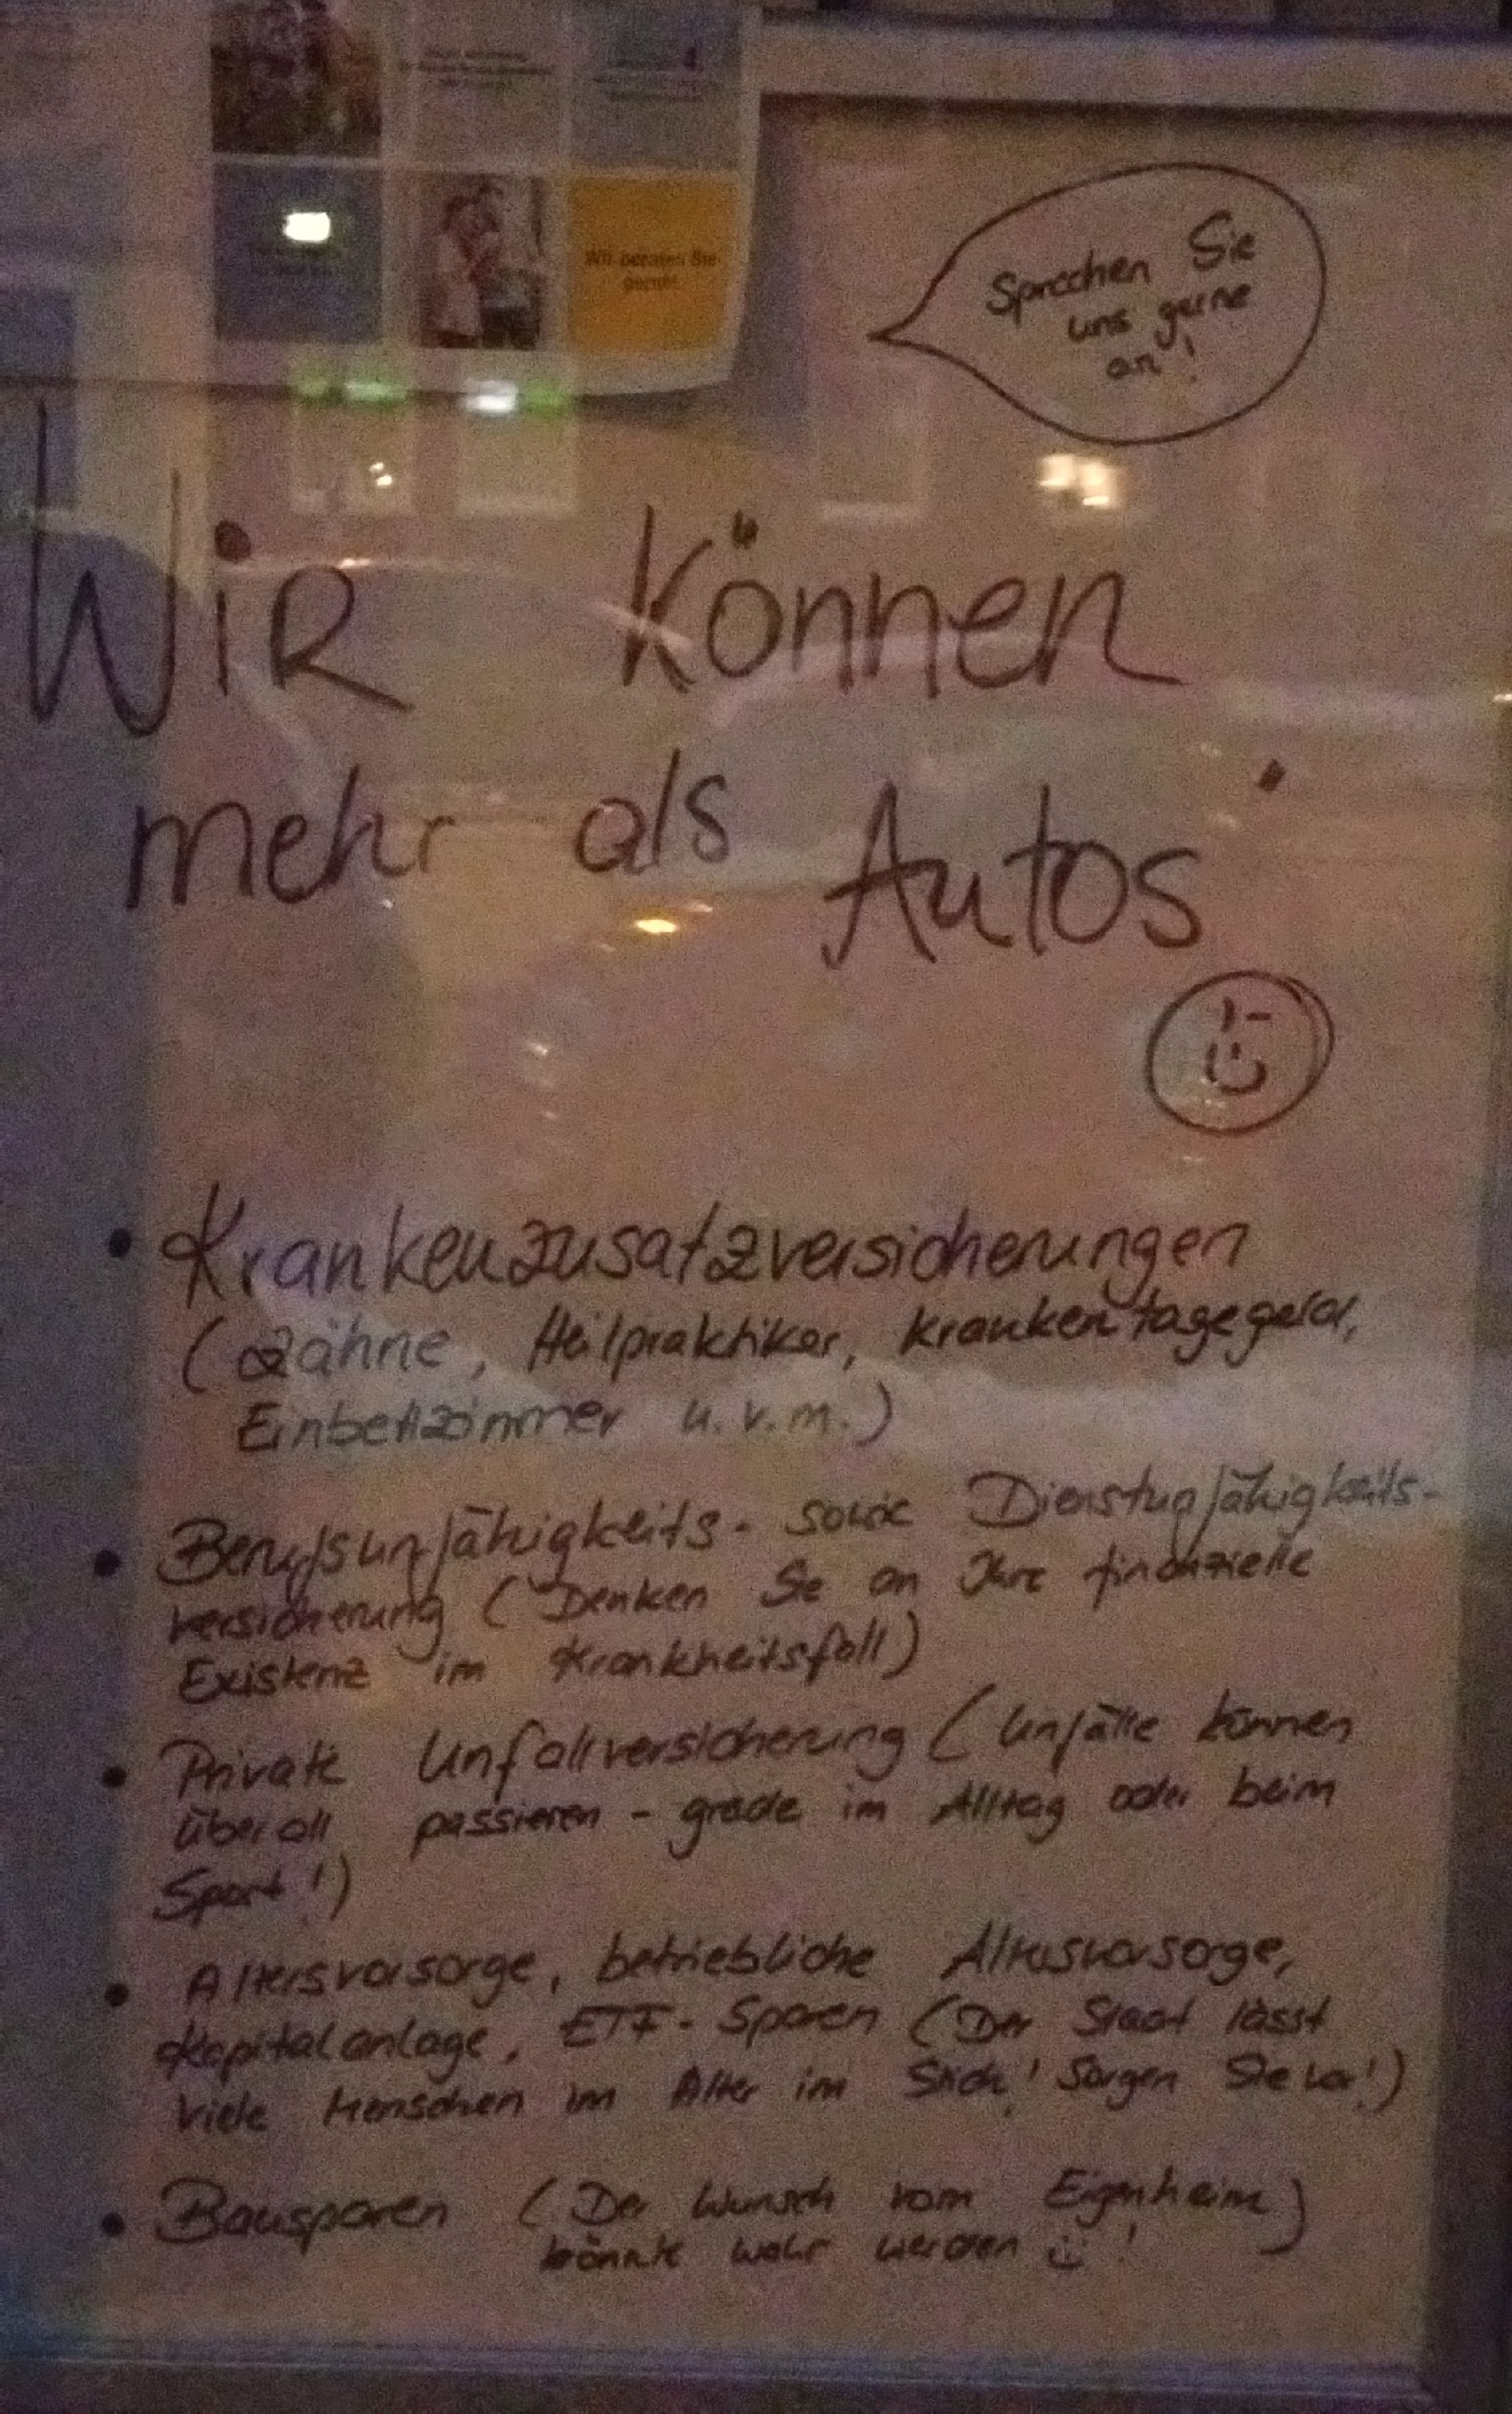 Wir beraten Sie
gerne!
Sprechen Sie
uns gerne
an!
WiR können
mehr als Autos
• Krankenzusatzversicherungen
(Zähne, Heilpraktiker, Krankentagegeld,
Einbettzimmer u.v.m.)
• Berufsunfähigkeits- sowie Dienstunfähigkeits-
versicherung (Denken Sie an Ihre finanzielle
Existenz im Krankheitsfall)
• Private Unfallversicherung (Unfälle können
überall passieren - grade im Alltag oder beim
Sport!)
• Altersvorsorge, betriebliche Altersvorsorge,
Kapitalanlage, ETF-Sparen (Der Staat lässt
viele Menschen im Alter im Stich! Sorgen Sie vor!)
• Bausparen (Der Wunsch vom Eigenheim)
könnte wahr werden !